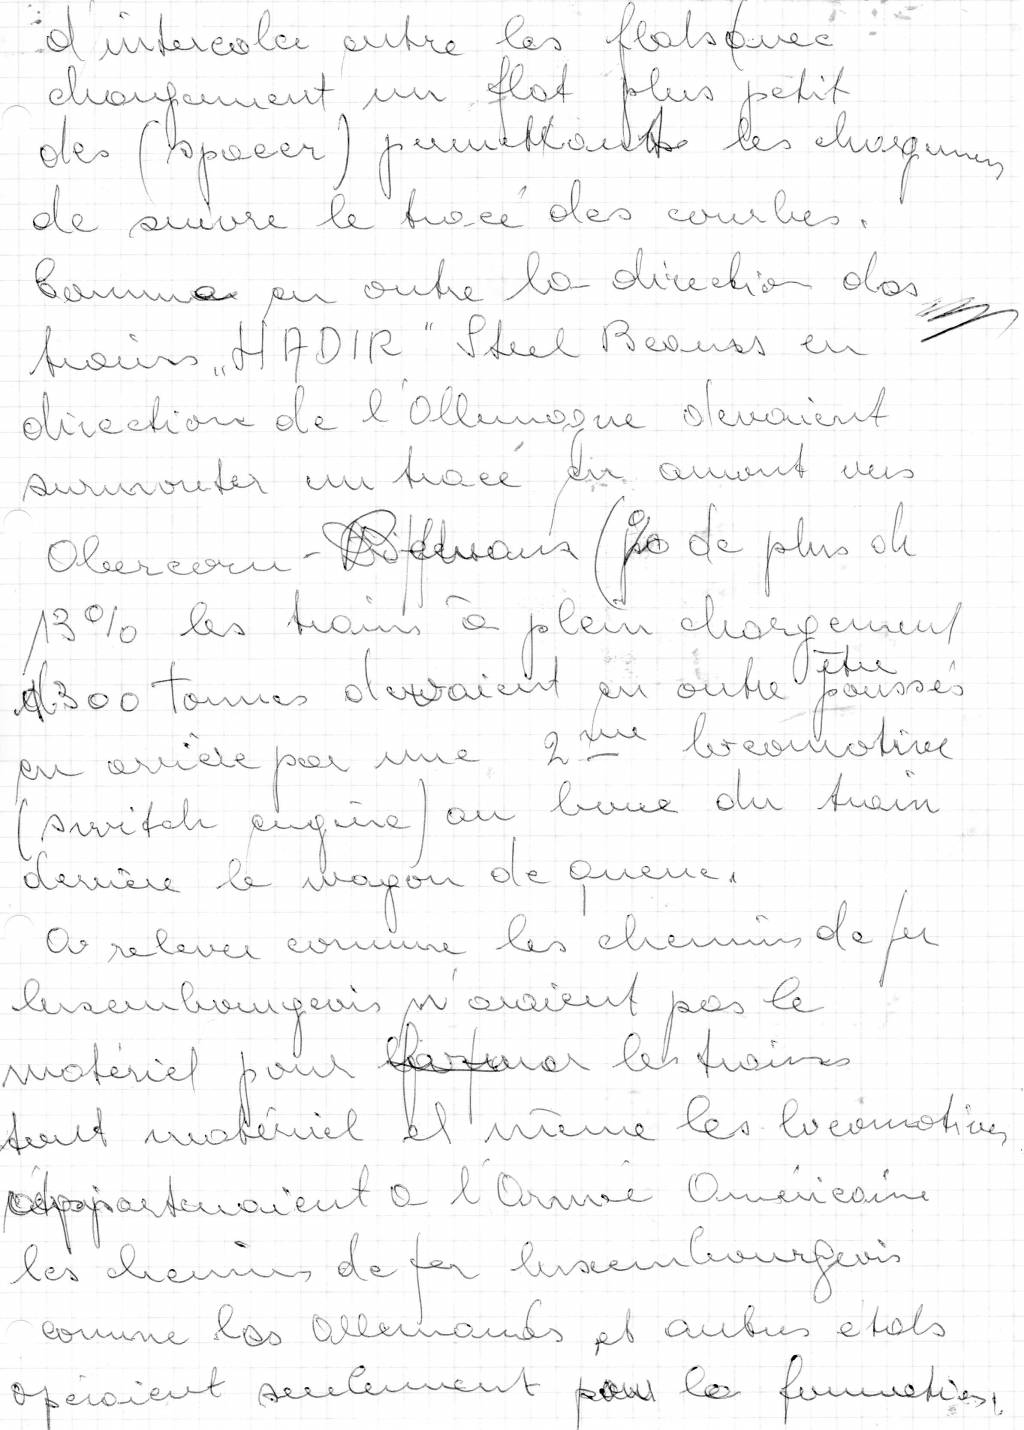 d'intercaler entre les flats (avec
chargement un flat plus petit
des (spacer) permettant les chargemen
de suivre le tracé des courbes.
Comme en outre la direction des
trains „HADIR" Steel Beams en
direction de l'Allemagne devaient
surmonter un tracé en amont vers
Obercorn - Differdange (% de plus de
13% les trains à plein chargement
1300 tonnes devaient en outre être poussés
en arrière par une 2me locomotive
(switch engine) au bout du train
derrière le wagon de queue.
A relever comme les chemins de fer
luxembourgeois n'avaient pas le
matériel pour former les trains
tout matériel et même les locomotives
appartenaient a l'Armée Américaine
les chemins de fer luxembourgeois
comme les Allemands et autres états
opéraient seulement pour la formation.